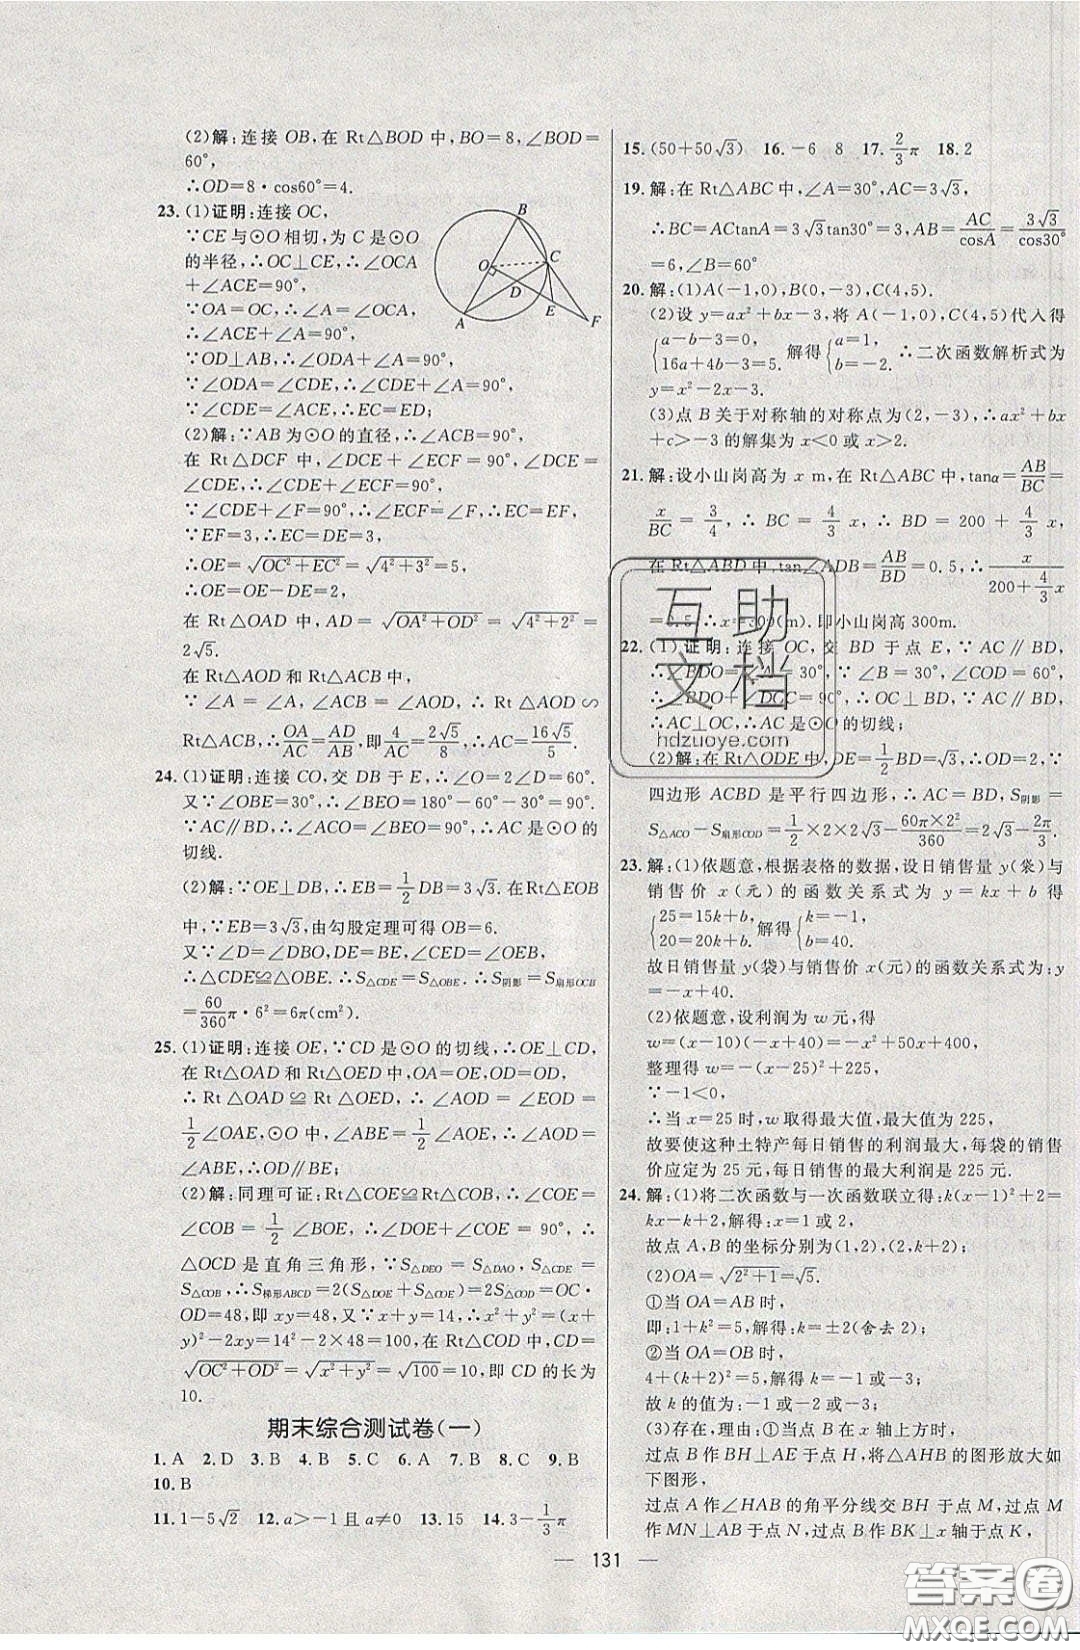 (2)解:连接 OB,在 Rt△BOD 中,BO=8,∠BOD=
60°,
∴OD=8·cos60°=4.
23.(1)证明:连接 OC,
∵CE 与⊙O 相切,为 C 是⊙O
的半径,∴OC⊥CE,∴∠OCA
+∠ACE=90°,
∵OA=OC,∴∠A=∠OCA,
∴∠ACE+∠A=90°,
∵OD⊥AB,∴∠ODA+∠A=90°,
∵∠ODA=∠CDE,∴∠CDE+∠A=90°,
∴∠CDE=∠ACE,∴EC=ED;
(2)解:∵AB 为⊙O 的直径,∴∠ACB=90°,
在 Rt△DCF 中,∠DCE+∠ECF=90°,∠DCE=
∠CDE,
∴∠CDE+∠ECF=90°,
∵∠CDE+∠F=90°,∴∠ECF=∠F,∴EC=EF,
∵EF=3,∴EC=DE=3,
∴OE=√(OC²+EC²)=√(4²+3²)=5,
∴OD=OE-DE=2,
在 Rt△OAD 中,AD=√(OA²+OD²)=√(4²+2²)=
2√5.
在 Rt△AOD 和 Rt△ACB 中,
∵∠A=∠A,∠AOD=∠ACB,∴Rt△AOD∽
Rt△ACB,∴OA/AC=AD/AB,即4/AC=2√5/8,∴AC=16√5/5.
24.(1)证明:连接 CO,交 DB 于 E,∴∠O=2∠D=60°.
又∵∠OBE=30°,∴∠BEO=180°-60°-30°=90°.
∵AC∥BD,∴∠ACO=∠BEO=90°,∴AC 是⊙O 的
切线.
(2)解:∵OE⊥DB,∴EB=1/2DB=3√3.在Rt△EOB
中,∵EB=3√3,由勾股定理可得 OB=6.
又∵∠D=∠DBO,DE=BE,∠CED=∠OEB,
∴△CDE≌△OBE.∴S△CDE=S△OBE.∴S阴影=S扇形OCB
=60/360π·6²=6π(cm²).
25.(1)证明:连接 OE,∵CD 是⊙O 的切线,∴OE⊥CD,
在 Rt△OAD 和 Rt△OED 中,OA=OE,OD=OD,
∴Rt△OAD≌Rt△OED,∴∠AOD=∠EOD=
1/2∠OAE,⊙O 中,∠ABE=1/2∠AOE,∴∠AOD=
∠ABE,∴OD∥BE;
(2)解:同理可证:Rt△COE≌Rt△COB,∴∠COE=
∠COB=1/2∠BOE,∴∠DOE+∠COE=90°,∴
△OCD 是直角三角形,∵S△DEO=S△DAO,S△CDE=
S△COB,∴S梯形ABCD=2(S△DOE+S△COE)=2S△COD=OC·
OD=48,即 xy=48,又∵x+y=14,∴x²+y²=(x+
y)²-2xy=14²-2×48=100,在 Rt△COD 中,CD=
√(OC²+OD²)=√(x²+y²)=√100=10,即 CD 的长为
10.
期末综合测试卷(一)
1.A 2.D 3.B 4.B 5.C 6.A 7.B 8.C 9.B
10.B
11.1-5√2 12.a>-1且a≠0 13.15 14.3-1/3π
15.(50+50√3) 16.-6 8 17.2/3π 18.2
19.解:在 Rt△ABC 中,∠A=30°,AC=3√3,
∴BC=ACtanA=3√3tan30°=3,AB=AC/cosA=3√3/cos30°
=6,∠B=60°
20.解:(1)A(-1,0),B(0,-3),C(4,5).
(2)设 y=ax²+bx-3,将 A(-1,0),C(4,5)代入得
{a-b-3=0,16a+4b-3=5. 解得{a=1,b=-2. ∴二次函数解析式为
y=x²-2x-3.
(3)点 B 关于对称轴的对称点为(2,-3),∴ax²+bx
+c>-3 的解集为 x<0 或 x>2.
21.解:设小山岗高为 x m,在 Rt△ABC 中,tanα=AB/BC=
x/BC=3/4,∴BC=4/3x,∴BD=200+4/3x,
在 Rt△ABD 中,tan∠ADB=AB/BD=0.5,∴x/(200+4/3x)
=0.5,∴x=300(m).即小山岗高300m.
22.(1)证明:连接 OC,交 BD 于点 E,∵AC∥BD,
∴∠BDO=∠A=30°,∵∠B=30°,∠COD=60°,
∴∠BDO+∠DOC=90°,∴OC⊥BD,∵AC∥BD,
∴AC⊥OC,∴AC 是⊙O 的切线;
(2)解:在 Rt△ODE 中,DE=1/2BD=√3,∵
四边形 ACBD 是平行四边形,∴AC=BD,S阴影=
S△ACO-S扇形COD=1/2×2×2√3-60π×2²/360=2√3-2π/3.
23.解:(1)依题意,根据表格的数据,设日销售量 y(袋)与
销售价 x(元)的函数关系式为 y=kx+b 得
{25=15k+b,20=20k+b. 解得{k=-1,b=40.
故日销售量 y(袋)与销售价 x(元)的函数关系式为:y=
-x+40.
(2)依题意,设利润为 w 元,得
w=(x-10)(-x+40)=-x²+50x+400,
整理得 w=-(x-25)²+225,
∵-1<0,
∴当 x=25 时,w 取得最大值,最大值为 225,
故要使这种土特产每日销售的利润最大,每袋的销售
价应定为 25 元,每日销售的最大利润是 225 元.
24.解:(1)将二次函数与一次函数联立得:k(x-1)²+2=
kx-k+2,解得:x=1 或 2,
故点 A,B 的坐标分别为(1,2),(2,k+2);
(2)OA=√(2²+1)=√5.
①当 OA=AB 时,
即:1+k²=5,解得:k=±2(舍去 2);
②当 OA=OB 时,
4+(k+2)²=5,解得:k=-1 或-3;
故 k 的值为:-1 或-2 或-3;
(3)存在,理由:①当点 B 在 x 轴上方时,
过点 B 作 BH⊥AE 于点 H,将△AHB 的图形放大如
下图形,
过点 A 作∠HAB 的角平分线交 BH 于点 M,过点 M
作 MN⊥AB 于点 N,过点 B 作 BK⊥x 轴于点 K,
B
O
C
D
E
A
F
— 131 —
互助
文档
hdzuoye.com
答案圈
MXQE.COM